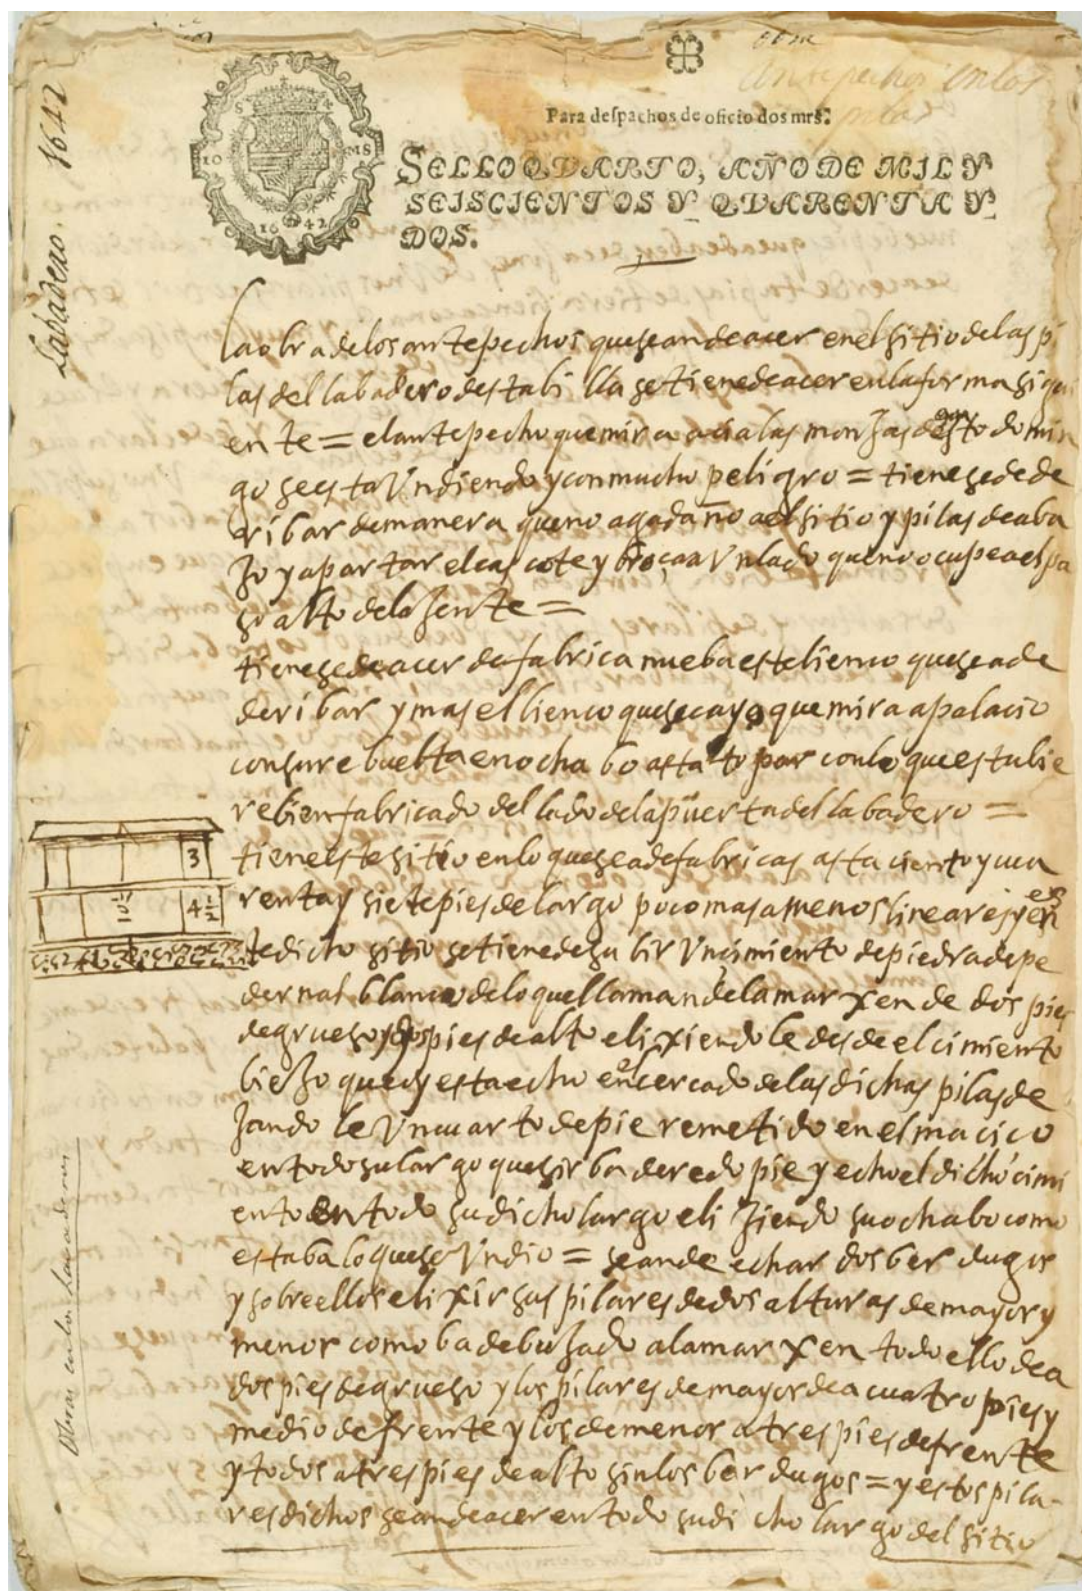 obra
antepechos en los
Para despachos de oficio dos mrs.
SELLO QVARTO, AÑO DE MIL Y
SEISCIENTOS Y QVARENTA Y
DOS.
1642
Labadero. 1642
la obra delos antepechos que sean de acer en el sitio de las pi
las del labadero destabi lla se tiene de acer en la forma sigui
en te = el antepecho que mira acia las monjas de sto domin
go se esta Vndiendo y con mucho peligro = tiene se de de
eribar de manera que no aga daño a el sitio y pilas de aba
Jo y apartar el cascote y broça a Vn lado que no ocupe a el pa
so alto de la Jente =
tiene se de acer de fabrica nueba este lienco que se a de
deribar y mas el lienco que se cayo que mira a palacio
con su rebuelta en ochabo asta topar con lo que estubie
re bien fabricado del lado de la puerta del labadero =
tiene este sitio en lo que se a de fabricas asta ciento y cua
renta y siete pies de largo poco mas a menos lineares y en es
te dicho sitio se tiene de su bir Vn cimiento de piedra de pe
dernal blanco de lo que llaman de lamarxen de dos pies
de grueso y dos pies de alto elixiendo le desde el cimiento
bieJo que oy esta echo en el cercado de las dichas pilas de
Jando le Vn cuarto de pie remetido en el macico
en todo su largo que sirba de redopie y echo el dicho cimi
ento en todo su dicho largo eli Jiendo su ochabo como
estaba lo que se Vndio = se an de echar dos berdugos
y sobre ellos elixir sus pilares de dos alturas de mayor y
menor como ba debuJado a la marxen todo ello de a
dos pies de grueso y los pilares de mayor de a cuatro pies y
medio de frente y los de menor a tres pies de frente
y todos a tres pies de alto sin los berdugos = y estos pila-
res dichos se an de acer en todo su di cho largo del sitio
3
4 1/2